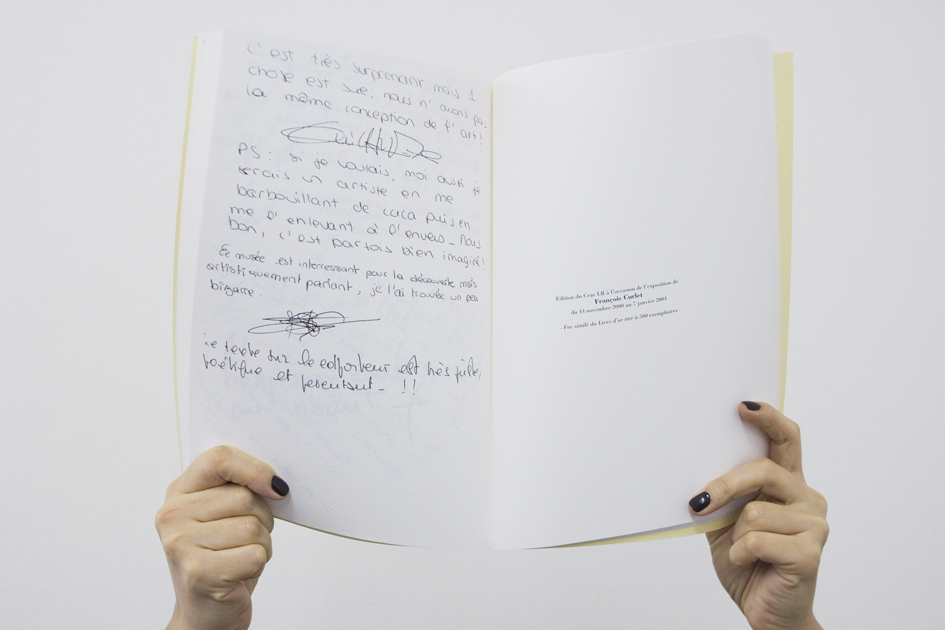 c'est très surprenant mais 1
chose est sure, nous n'avons pas
la même conception de l'art!
PS: si je voulais, moi aussi je
serais un artiste en me
barbouillant de caca puis en
me l'enlevant à l'envers_ Mais
bon, c'est parfois bien imaginé!
Ce musée est interressant pour la découverte mais
artistiquement parlant, je l'ai trouvée un peu
bizarre.
Le texte sur le colporteur est très juste,
poétique et percutant_ !!
Edition du Crac LR à l'occasion de l'exposition de
François Curlet
du 14 novembre 2000 au 7 janvier 2001
- Fac similé du Livre d'or tiré à 500 exemplaires -